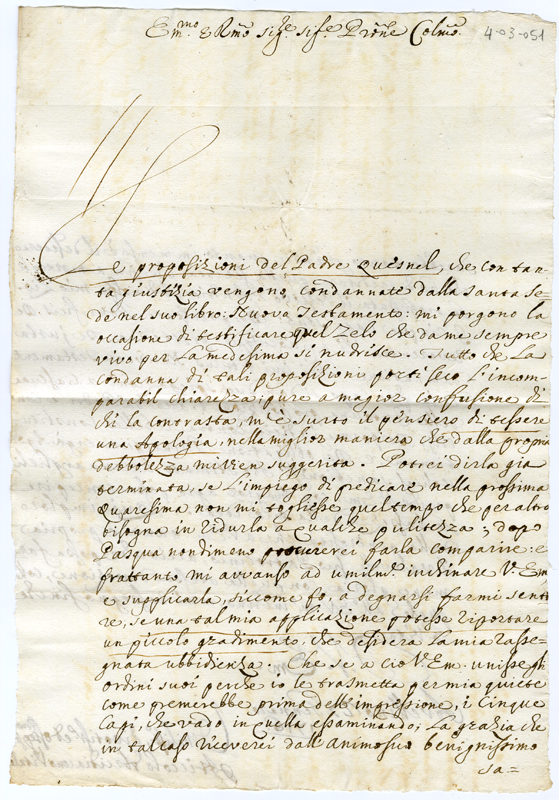 Em.mo e R.mo Sig.re Sig.re P.rone Col.mo
4-03-051
Le proposizioni del Padre Quesnel, che con tan-
ta giustizia vengono condannate dalla santa se-
de nel suo libro: Nuovo Testamento: mi porgono la
occasione di testificare quel zelo che da me sempre
vivo per la medesima si nudrisce. Tutto che la
condanna di tali proposizioni porti seco l'incom-
parabil chiarezza; pure a magior confusione di
chi la contrasta, m'è surto il pensiero di tessere
una Apologia, nella miglior maniera che dalla propria
debbolezza mi vien suggerita. Potrei dirla gia
terminata, se l'impiego di predicare nella prossima
Quaresima non mi togliesse quel tempo che per altro
bisogna in ridurla a qualche pulitezza; dopo
Pasqua nondimeno procurerei farla comparire: e
frattanto, mi avvanso ad umilm.e inchinare V. Em.
e supplicarla, siccome fo, a degnarsi farmi senti-
re, se una tal mia applicazione potesse riportare
un piccolo gradimento, che desidera la mia rasse-
gnata ubbidienza. Che se a cio V. Em. unisse gli
ordini suoi perche io le trasmetta per mia quiete
come premerebbe prima dell'impressione, i Cinque
Capi, che vado in quella essaminando; la grazia che
in tal caso riceverei dall'Animo suo benignissimo
sa=